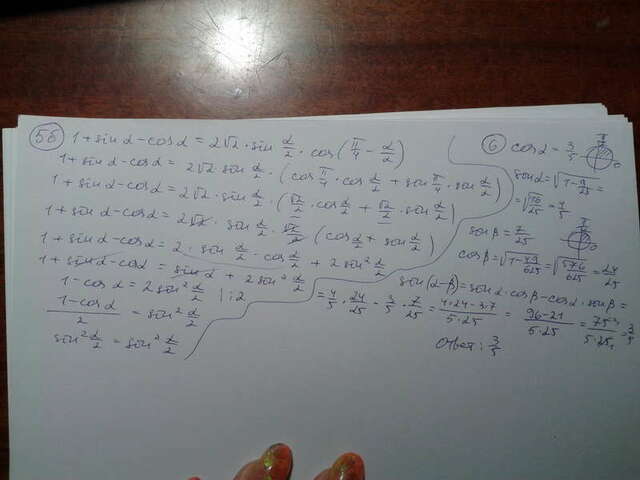 5б
1+sin α-cos α = 2√2 · sin α/2 · cos(π/4 - α/2)
1+sin α-cos α = 2√2 · sin α/2 · (cos π/4 · cos α/2 + sin π/4 · sin α/2)
1+sin α-cos α = 2√2 · sin α/2 · (√2/2 · cos α/2 + √2/2 · sin α/2)
1+sin α-cos α = 2√2 · sin α/2 · √2/2 (cos α/2 + sin α/2)
1+sin α-cos α = 2 · sin α/2 · cos α/2 + 2 sin² α/2
1+sin α-cos α = sin α + 2 sin² α/2
1-cos α = 2 sin² α/2 |:2
(1-cos α)/2 = sin² α/2
sin² α/2 = sin² α/2
6 cos α = 3/5
sin α = √(1 - 9/25) =
= √(16/25) = 4/5
sin β = 7/25
cos β = √(1 - 49/625) = √(576/625) = 24/25
sin(α-β) = sin α · cos β - cos α · sin β =
= 4/5 · 24/25 - 3/5 · 7/25 = (4·24-3·7)/(5·25) = (96-21)/(5·25) = 75³/(5·25₁) = 3/5
Ответ: 3/5